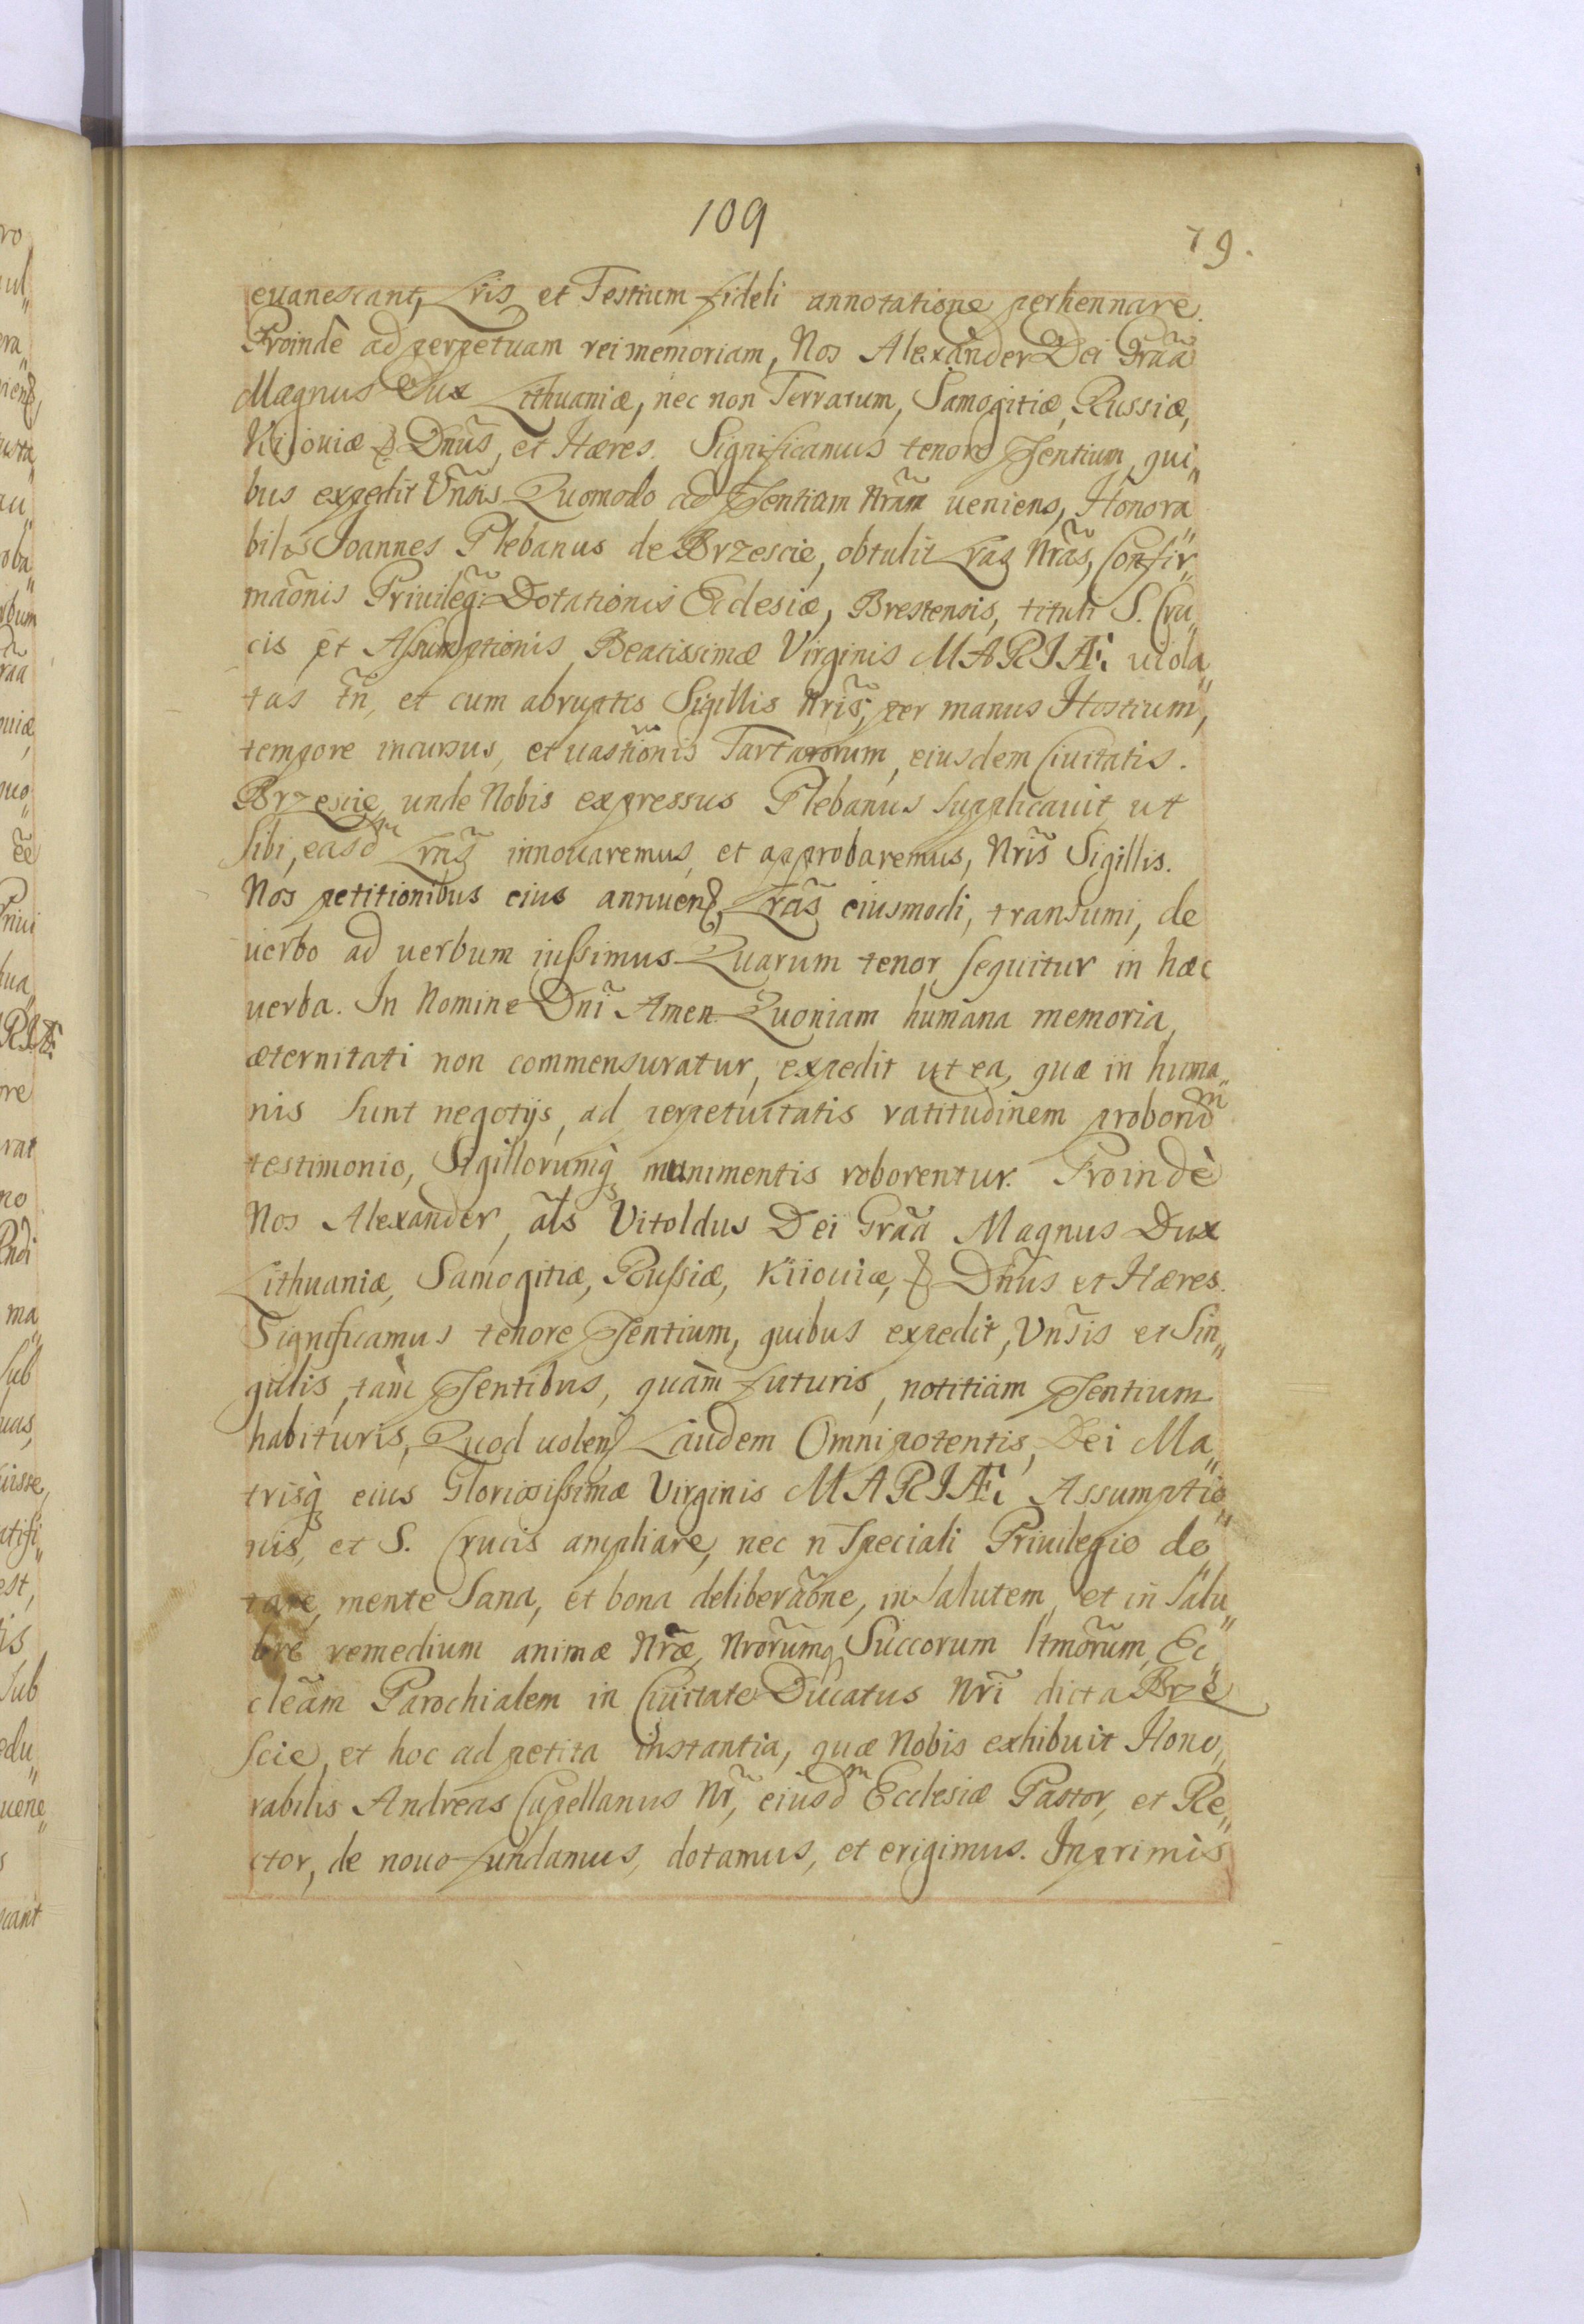 109
79.
euanescant, Lris et Testium fideli annotatione perhennare.
Proindè ad perpetuam rei memoriam, Nos Alexander Dei Graã
Magnus Dux Lithuaniæ, nec non Terrarum, Samogitiæ, Russiæ,
Kijouiæ & Dnũs, et Hæres. Significamus tenore Psentium, qui„
bus expedit Vnsĩs Quomodo ad Psentiam Nrãm ueniens, Honora„
bilis Joannes Plebanus de Brzescie, obtulit Lras Nrãs, Confir„
maõnis Priuileg̃: Dotationis Ecclesiæ, Brestensis, tituli S. Cru„
cis et Aſsumptionis Beatissimæ Virginis MARIÆ: uiola„
tas tñ, et cum abruptis Sigillis Nrĩs, per manus Hostium,
tempore incursus, et uastiõnis Tartarorum, eiusdem Ciuitatis.
Brzescie, unde Nobis expressus Plebanus supplicauit, ut
sibi, easdm Lrãs innouaremus, et approbaremus, Nrĩs Sigillis.
Nos petitionibus eius annuen̄, Lrãs eiusmodi, transumi, de
uerbo ad uerbum iuſsimus. Quarum tenor sequitur in hæc
uerba. In Nomine Dnĩ Amen. Quoniam humana memoria,
æternitati non commensuratur, expedit ut ea, quæ in huma„
nis sunt negotijs, ad perpetuitatis ratitudinem proborũm
testimonio, Sigillorumq̀ munimentis roborentur. Proindè
Nos Alexander, als̃ Vitoldus Dei Graã Magnus Dux
Lithuaniæ, Samogitiæ, Ruſsiæ, Kiiouiæ, & Dñus et Hæres.
Significamus tenore Psentium, quibus expedit, Vnsĩs et Sin„
gulis, tam̀ Psentibus, quàm futuris, notitiam Psentium
habituris, Quod uolen̄ Laudem Omnipotentis, Dei Ma„
trisq̀ eius Glorioſissimæ Virginis MARIÆ: Assumptio„
nis, et S. Crucis ampliare, nec n̄ speciali Priuilegio do„
tare, mente sana, et bona deliberaõne, in salutem, et in salu„
bre remedium animæ Nrãe, Nrorũmq̀ Succorum ltmorũm, Ec„
cleãm Parochialem in Ciuitate Ducatus Nrĩ dicta Brze„
scie, et hoc ad petita instantia, quæ Nobis exhibuit Hono„
rabilis Andreas Capellanus Nr̃, eiusdm Ecclesiæ Pastor, et Re„
ctor, de nouo fundamus, dotamus, et erigimus. Inprimis